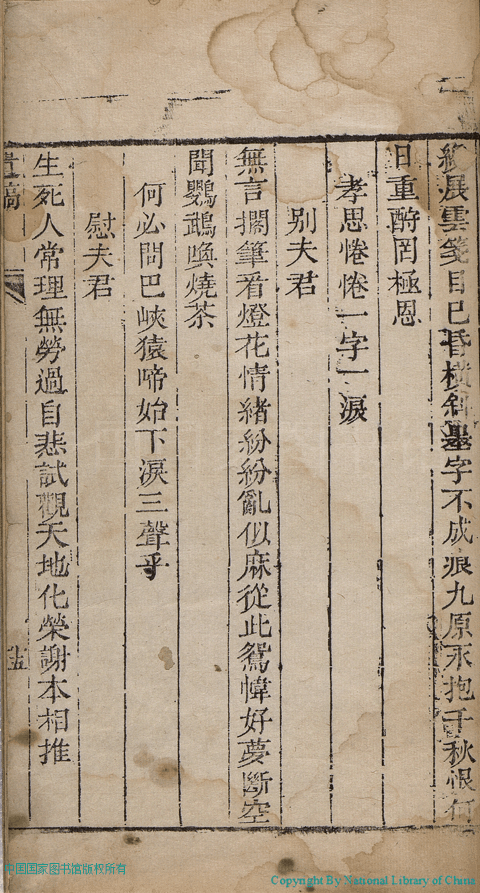 纔展雲箋目已昏橫斜墨字不成痕九原永抱千秋恨何
日重酧罔極恩
孝思惓惓一字一淚
别夫君
無言擱筆看燈花情緒紛紛亂似麻從此鴛幃好夢斷空
聞鸚鵡喚燒茶
何必問巴峽猿啼始下淚三聲乎
慰夫君
生死人常理無勞過自悲試觀天地化榮謝本相推
遺稿
十五
中国国家图书馆版权所有
Copyright By National Library of China